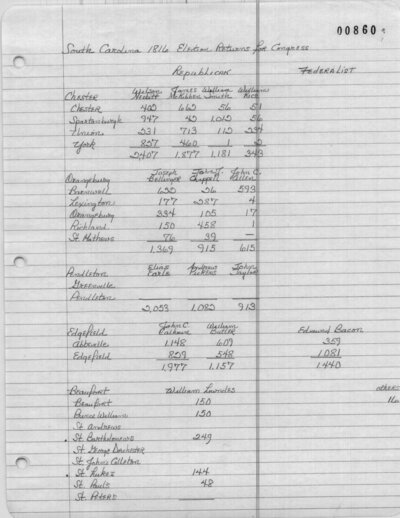 00860
South Carolina 1816 Election Returns for Congress
Republican Federalist
Chester Wilson Nesbitt James McKibben William Smith William Rice
Chester 402 662 56 51
Spartanburgh 947 42 1,012 56
Union 231 713 112 234
York 827 460 1 2
2407 1,877 1,181 343
Orangeburg Joseph Bellinger John J. Chappell John C. Allen
Barnwell 632 26 593
Lexington 177 287 4
Orangeburg 334 105 17
Richland 150 458 1
St. Mathews 76 39 —
1,369 915 615
Pendleton Elias Earle Andrew Pickens John Taylor
Greenville
Pendleton
2,059 1,082 913
Edgefield John C. Calhoun William Butler Edmund Bacon
Abbeville 1,148 609 359
Edgefield 829 548 1,081
1,977 1,157 1,440
Beaufort William Lowndes others
Beaufort 150
Prince William 150
St. Andrews
St. Bartholomews 249
St. George Dorchester
St. Johns Colleton
St. Lukes 144
St. Pauls 48
St. Peters